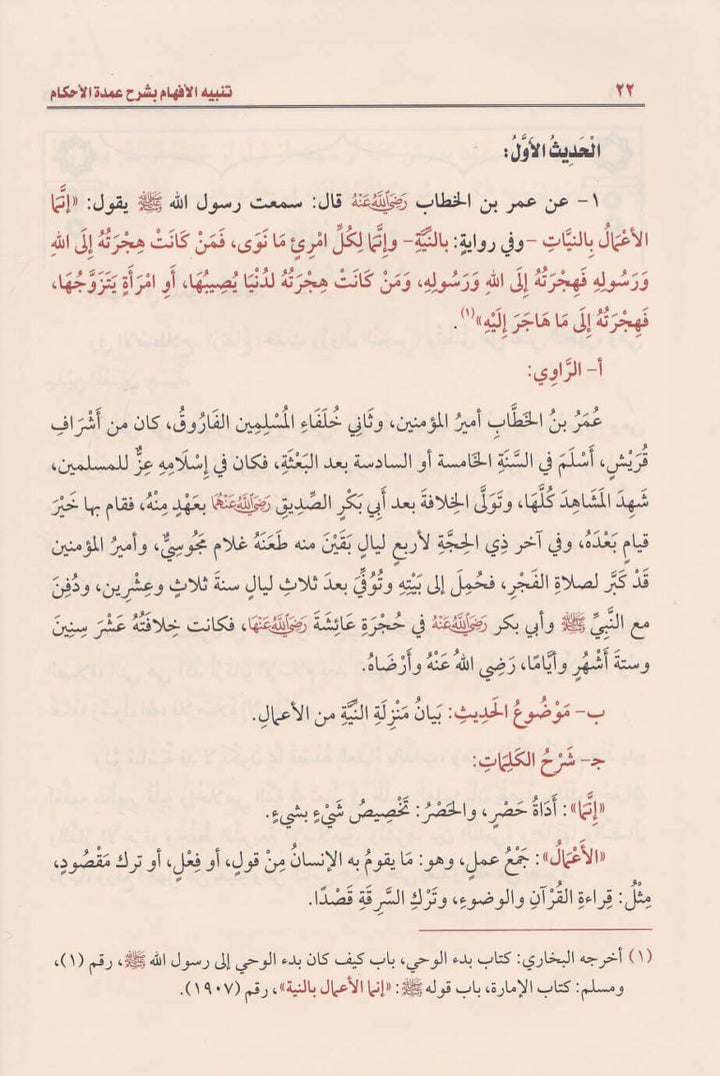 ٢٢ تنبيه الأفهام بشرح عمدة الأحكام
الْحَدِيثُ الأَوَّلُ:
١- عن عمر بن الخطاب رَضِيَ اللَّهُ عَنْهُ قال: سمعت رسول الله ﷺ يقول: «إِنَّمَا
الأَعْمَالُ بِالنِّيَّاتِ -وفي روايةٍ: بالنيَّةِ- وإِنَّمَا لِكُلِّ امْرِئٍ مَا نَوَى، فَمَنْ كَانَتْ هِجْرَتُهُ إِلَى اللهِ
وَرَسُولِهِ فَهِجْرَتُهُ إِلَى اللهِ وَرَسُولِهِ، وَمَنْ كَانَتْ هِجْرَتُهُ لدُنْيَا يُصِيبُهَا، أَوِ امْرَأَةٍ يَتَزَوَّجُهَا،
فَهِجْرَتُهُ إِلَى مَا هَاجَرَ إِلَيْهِ»(١).
أ- الرَّاوِي:
عُمَرُ بنُ الخَطَّابِ أميرُ المؤمنين، وثَانِي خُلَفَاءِ المُسْلِمِين الفَارُوقُ، كان من أَشْرَافِ
قُرَيْشٍ، أَسْلَمَ في السَّنَةِ الخامسة أو السادسة بعد البَعْثَةِ، فكان في إِسْلَامِهِ عِزٌّ للمسلمين،
شَهِدَ المَشَاهِدَ كُلَّهَا، وتَوَلَّى الخِلافةَ بعد أَبِي بَكْرٍ الصِّدِيقِ رَضِيَ اللَّهُ عَنْهُمَا بعَهْدٍ مِنْهُ، فقام بها خَيْرَ
قيامٍ بَعْدَهُ، وفي آخر ذِي الحِجَّةِ لأربعِ ليالٍ بَقَيْنَ منه طَعَنَهُ غلام مَجُوسِيٌّ، وأميرُ المؤمنين
قَدْ كَبَّر لصلاةِ الفَجْرِ، فحُمِلَ إلى بَيْتِهِ وتُوُفِّيَ بعدَ ثلاثِ ليالٍ سنةَ ثلاثٍ وعِشْرِين، ودُفِنَ
مع النَّبِيِّ ﷺ وأبي بكر رَضِيَ اللَّهُ عَنْهُ في حُجْرَةِ عَائِشَةَ رَضِيَ اللَّهُ عَنْهَا، فكانت خِلافَتُهُ عَشْرَ سِنِينَ
وستةَ أَشْهُرٍ وأيَّامًا، رَضِي اللهُ عَنْهُ وأَرْضَاهُ.
ب- مَوْضُوعُ الحَدِيثِ: بَيَانُ مَنْزِلَةِ النيَّةِ من الأعمالِ.
جـ- شَرْحُ الكَلِمَاتِ:
«إِنَّمَا»: أَدَاةُ حَصْرٍ، والحَصْرُ: تَخْصِيصُ شَيْءٍ بشيءٍ.
«الأَعْمَالُ»: جَمْعُ عملٍ، وهو: مَا يقومُ به الإنسانُ مِنْ قولٍ، أو فِعْلٍ، أو ترك مَقْصُودٍ،
مِثْلُ: قِراءةِ القُرْآنِ والوضوءِ، وتَرْكِ السَّرِقَةِ قَصْدًا.
(١) أخرجه البخاري: كتاب بدء الوحي، باب كيف كان بدء الوحي إلى رسول الله ﷺ، رقم (١)،
ومسلم: كتاب الإمارة، باب قوله ﷺ: «إنما الأعمال بالنية»، رقم (١٩٠٧).